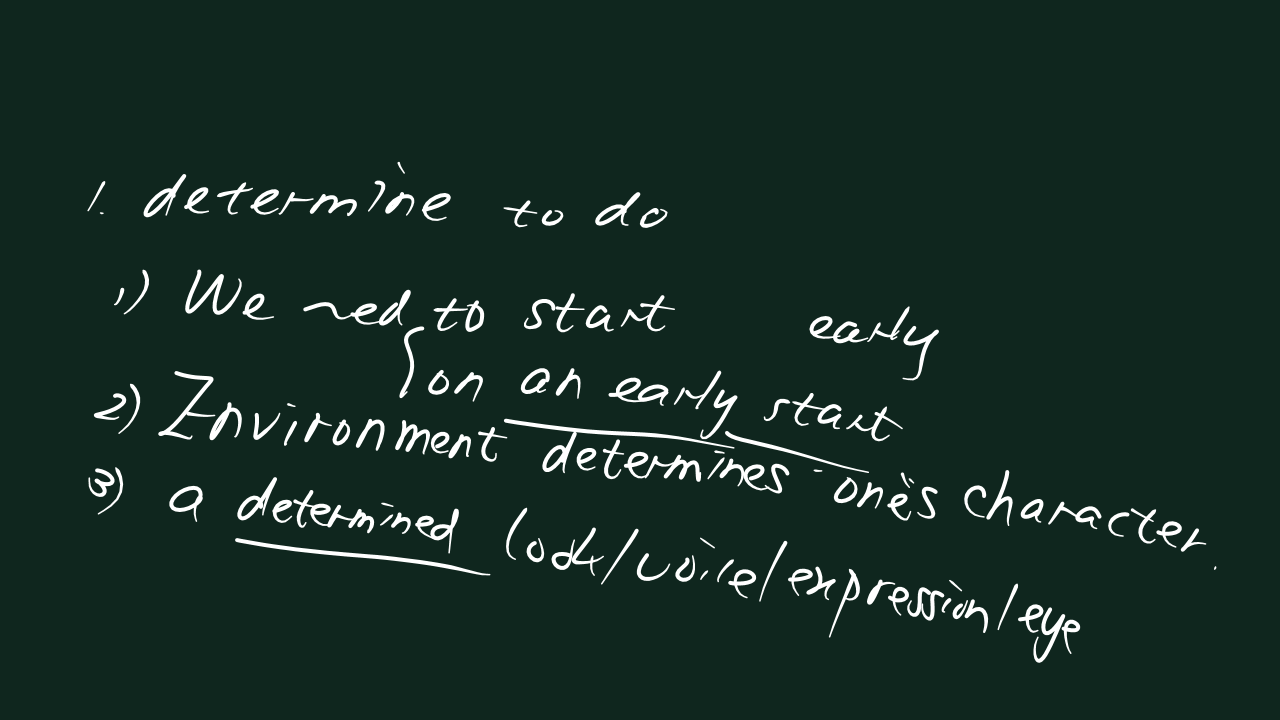 1. determine to do
1) We need to start early
on an early start
2) Environment determines one's character.
3) a determined look/voice/expression/eye